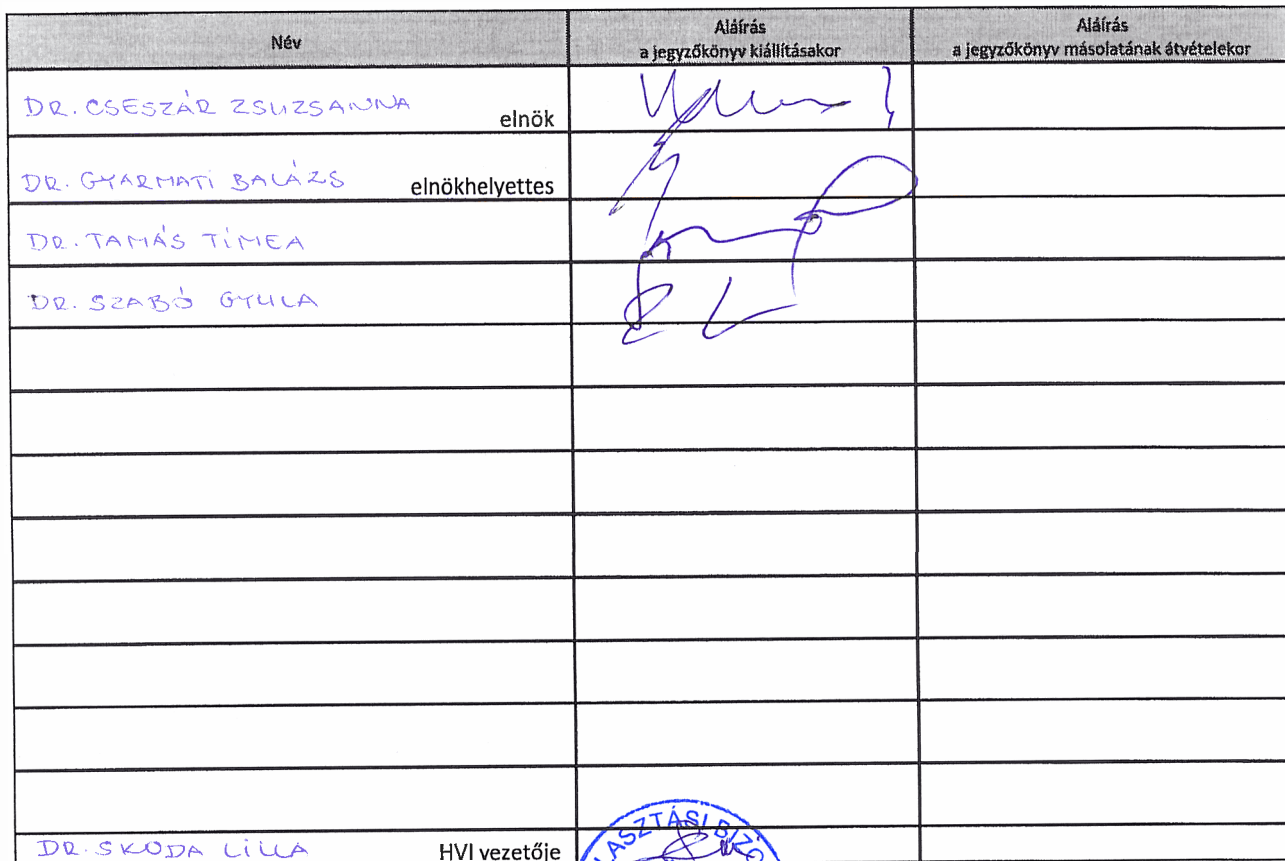 Név
Aláírás
a jegyzőkönyv kiállításakor
Aláírás
a jegyzőkönyv másolatának átvételekor
DR. CSESZÁR ZSUZSANNA elnök
DR. GYARMATI BALÁZS elnökhelyettes
DR. TAMÁS TÍMEA
DR. SZABÓ GYULA
DR. SKODA LILLA HVI vezetője
LASZTÁSI BIZO